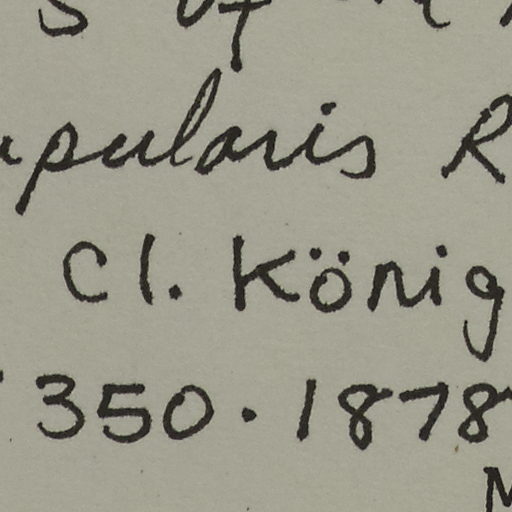 s of
pularis R
Cl. König
350 · 1878